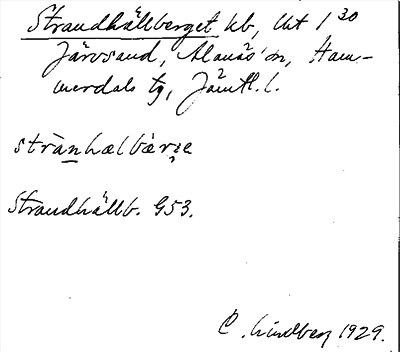 Strandhällberget kb, Ut 1 30
Järvsand, Alanäs' sn, Ham-
merdals tg, Jämtl. l.
strànhælbærʒe
Strandhällb. G53.
C. Lindberg 1929.